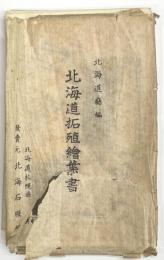 北海道廳編
北海道拓殖繪葉書
北海道札幌
發賣元 北海石版